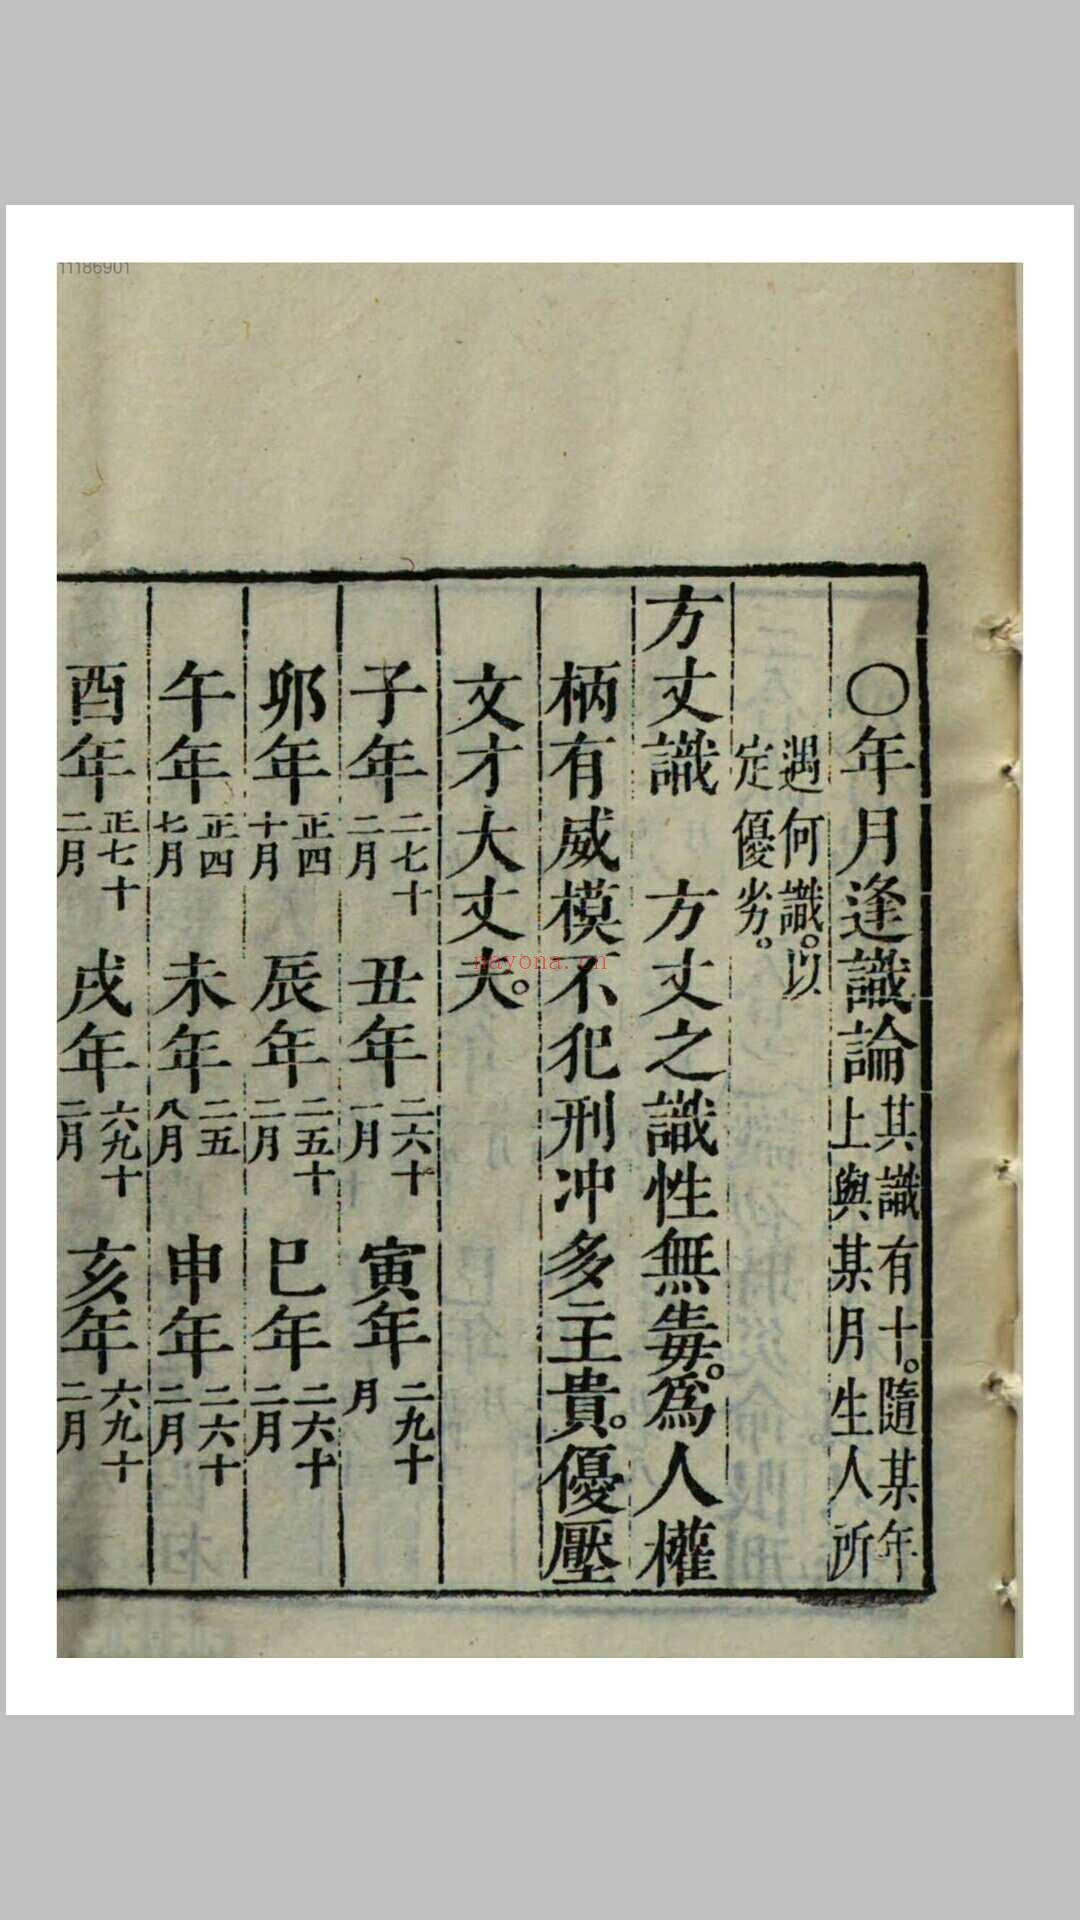 11186901
○年月逢識論 其識有十。隨某年上與某月生人所
遇何識。以定優劣。
方丈識 方丈之識性無毒。爲人權
柄有威模不犯刑冲多主貴。優壓
文才大丈夫。
子年 二七十二月 丑年 二六十一月 寅年 二九十月
卯年 正四十月 辰年 二五十二月 巳年 二六十二月
午年 正四七月 未年 二五八月 申年 二六十二月
酉年 正七十二月 戌年 六九十二月 亥年 六九十二月
nayona.cn